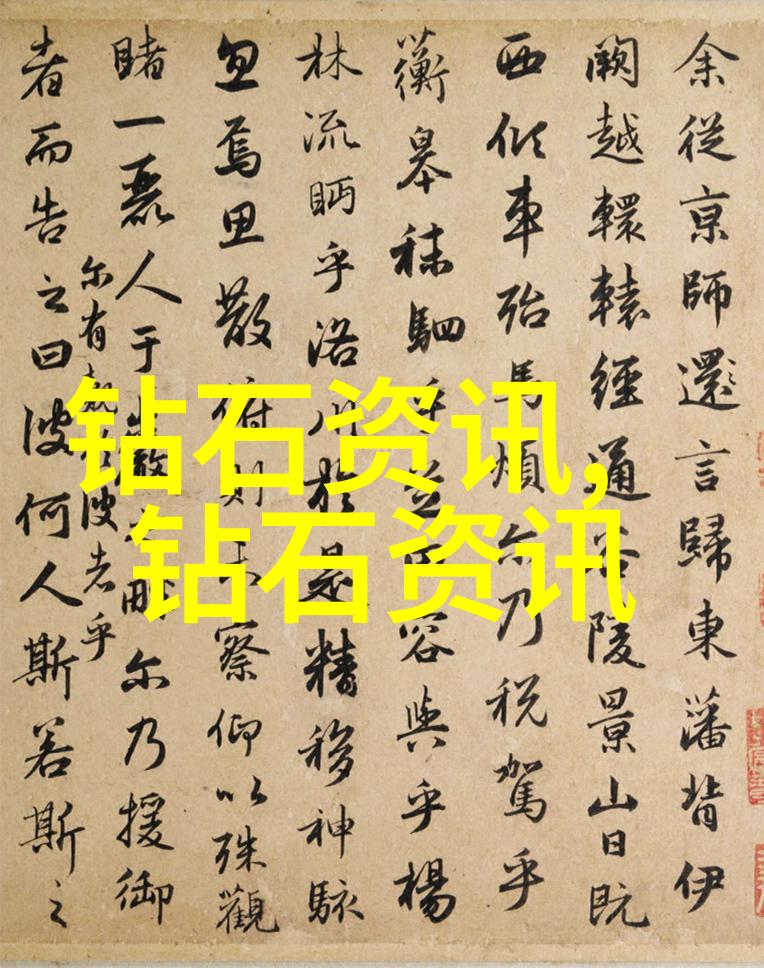 余從京師還言歸東藩背伊
闕越轘轅經通谷陵景山日既
西傾車殆馬煩尔乃税駕乎
蘅皋秣駟乎芝田容與乎楊
林流眄乎洛川於是精移神駭
忽焉思散俯則未察仰以殊觀
睹一麗人于巖之畔尔乃援御
尔有覿於彼者乎
者而告之曰彼何人斯若斯之
钻石资讯,
钻石资讯